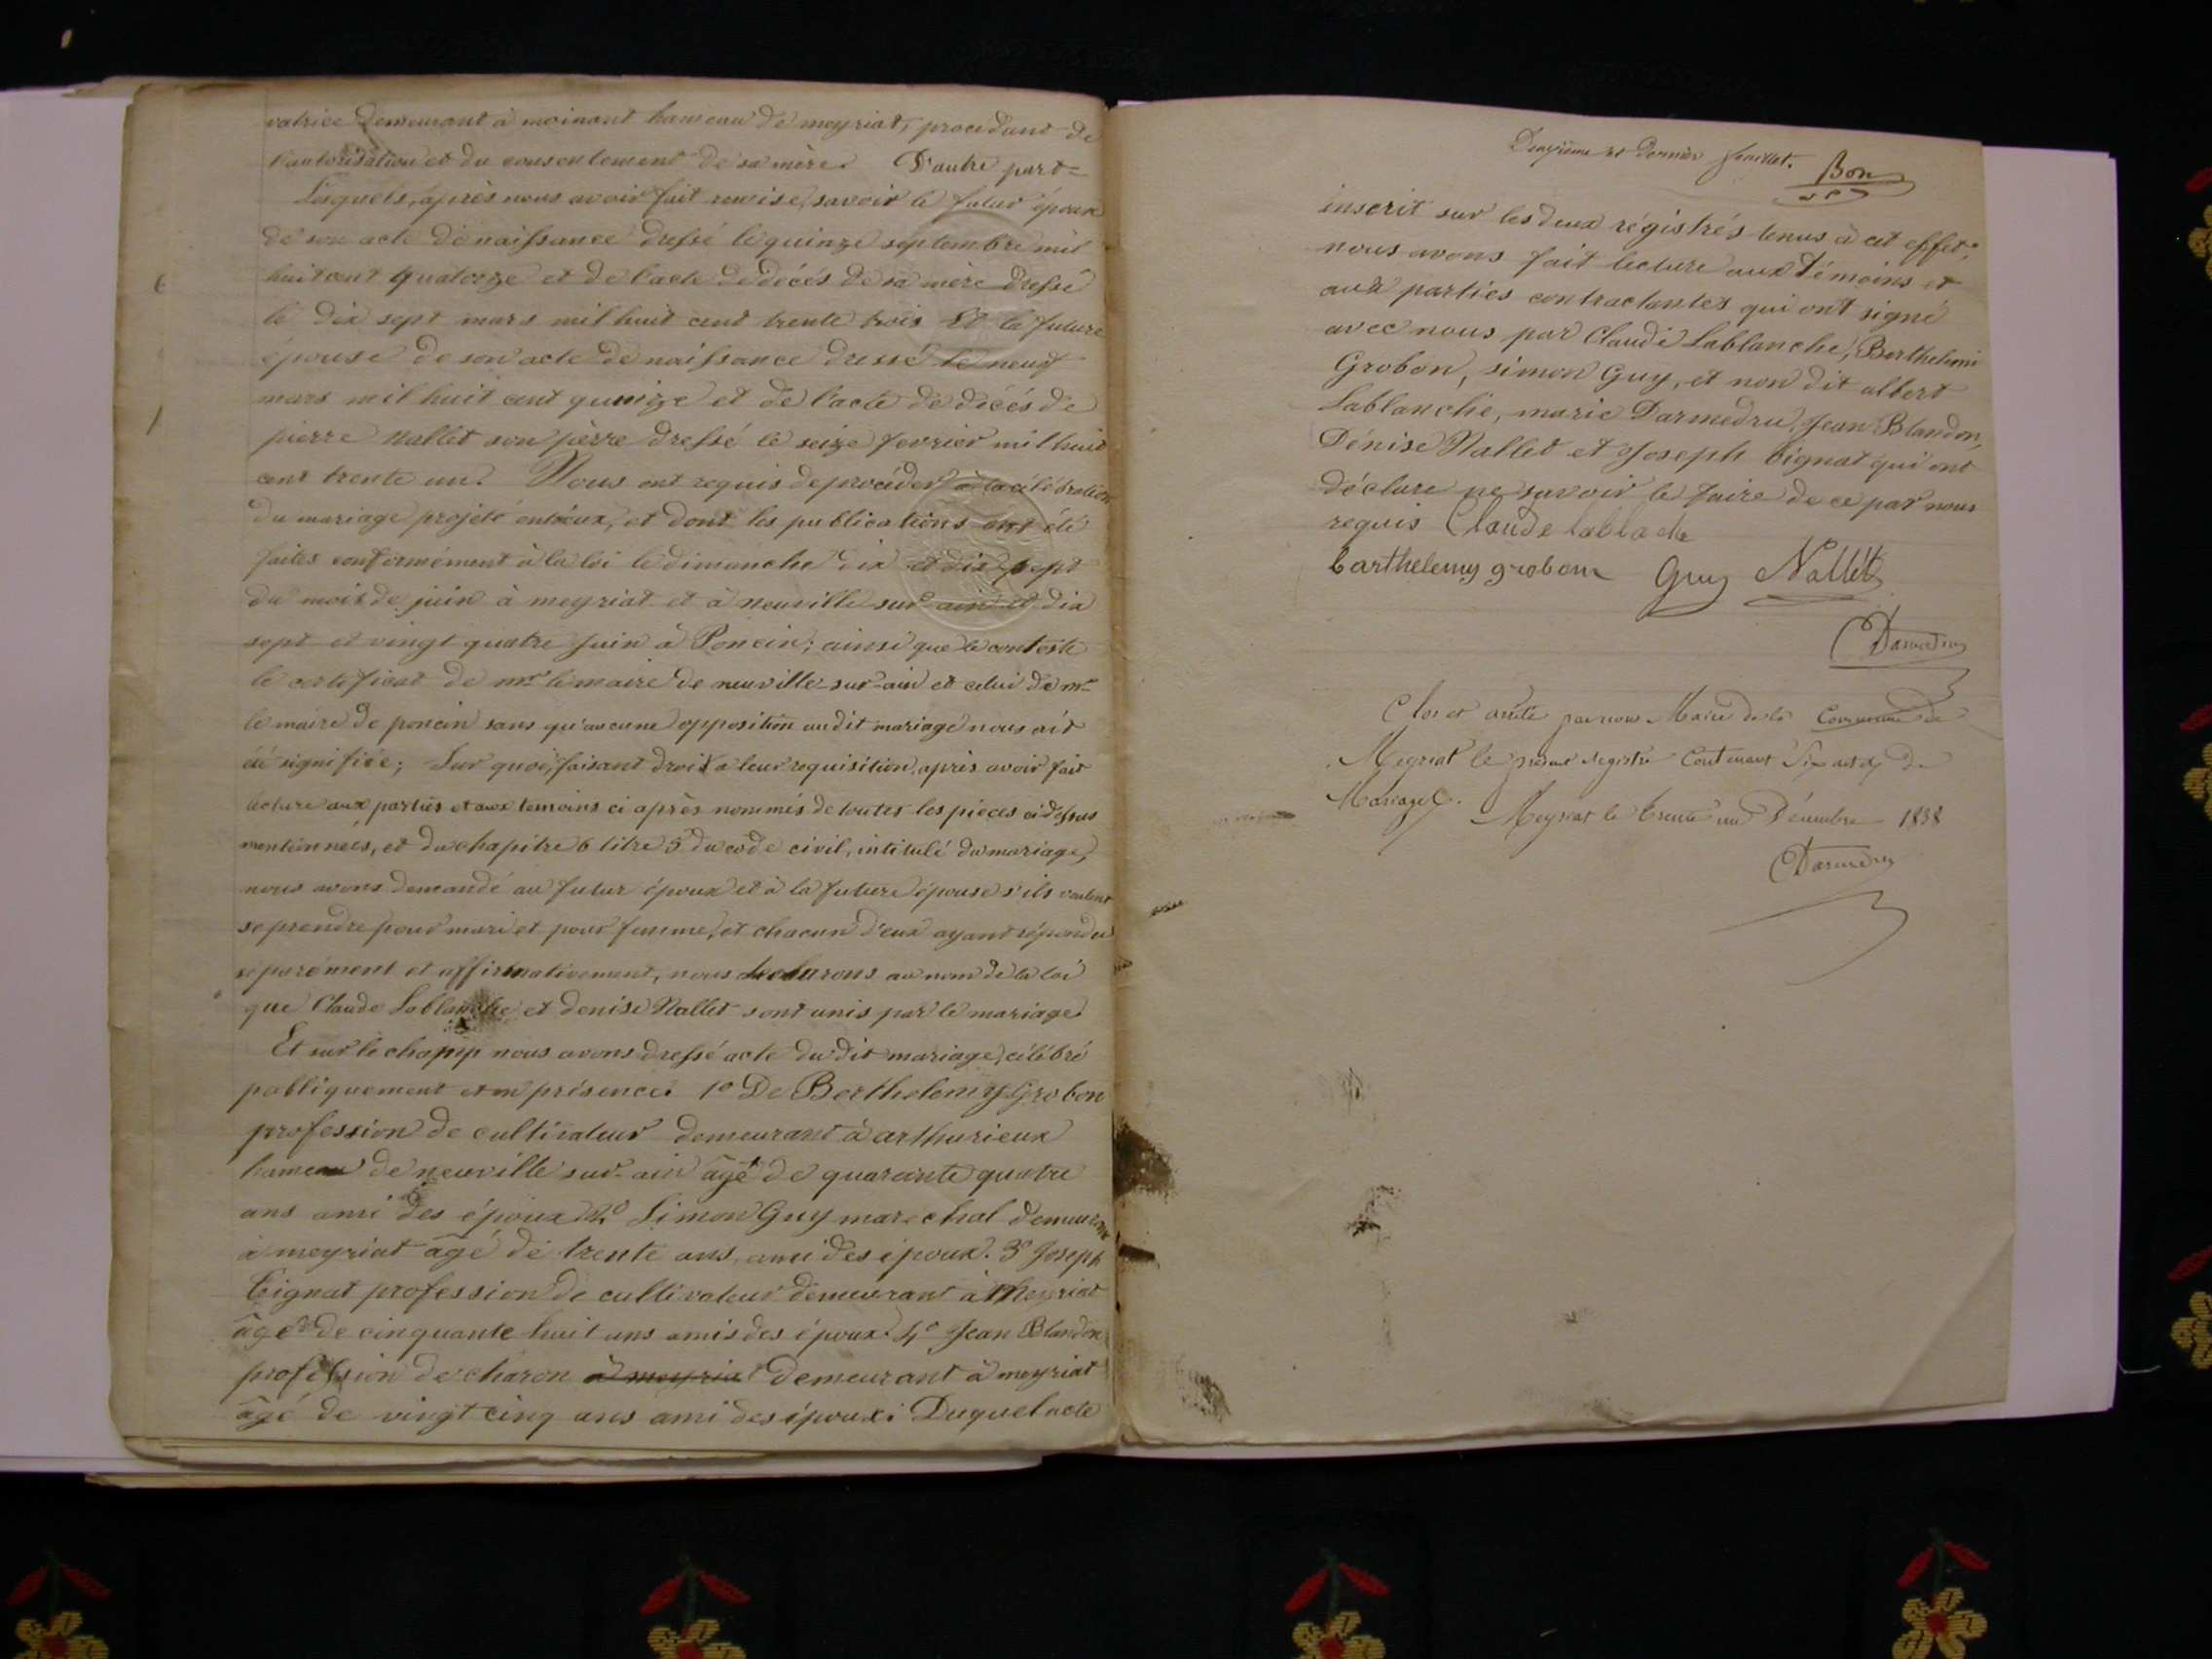 vatrice demeurant à moinant hameau de meyriat, procedant de
l'autorisation et du consentement de sa mère. D'autre part =
Lesquels, après nous avoir fait remise, savoir le futur époux
de son acte de naissance dressé le quinze septembre mil
huit cent quatorze et de l'acte de décés de sa mère dressé
le dix sept mars mil huit cent trente trois Et la future
épouse de son acte de naissance dressé le neuf
mars mil huit cent quinze et de l'acte de décés de
pierre Nallet son père dressé le seize fevrier mil huit
cent trente un. Nous ont requis de procéder à la célébration
du mariage projeté entreux, et dont les publications ont été
faites conformément à la loi le dimanche dix et dix sept
du mois de juin à meyriat et à neuville sur ain et dix
sept et vingt quatre juin à Poncin; ainsi que le conteste
le certificat de mr le maire de neuville-sur-ain et celui de mr
le maire de poncin sans qu'aucune opposition audit mariage nous ait
été signifiée; Sur quoi, faisant droit a leur requisition, après avoir fait
lecture aux parties et aux temoins ci après nommés de toutes les pièces ci dessus
mentionnées, et du chapitre 6 titre 5 du code civil, intitulé du mariage,
nous avons demandé au futur époux et à la future épouse s'ils veulent
se prendre pour mari et pour femme, et chacun d'eux ayant répondu
séparément et affirmativement, nous declarons au nom de la loi
que Claude Lablanche et denise Nallet sont unis par le mariage
Et sur le champ nous avons dressé acte du dit mariage, célébré
publiquement et en présence. 1º De Berthelemy Grobon
profession de cultivateur demeurant à arthurieux
hameau de neuville sur-ain âgé de quarante quatre
ans ami des époux 2º Simon Guy marechal demeurant
à meyriat âgé de trente ans, ami des époux. 3º Joseph
Tignat profession de cultivateur demeurant à Meyriat
âgé de cinquante huit ans amis des époux. 4º Jean Blandon
profession de charon à meyriat demeurant à meyriat
âgé de vingt cinq ans ami des époux; Duquel acte
6
Deuxième et dernier feuillet. Bon
inscrit sur les deux régistrés tenus à cet effet;
nous avons fait lecture aux témoins et
aux parties contractantes qui ont signé
avec nous par Claude Lablanche, Berthelemi
Grobon, simon Guy, et non dit albert
Lablanche, marie Darmedru, Jean Blandon,
Dénise Nallet et Joseph Tignat qui ont
déclare ne savoir le faire de ce par nous
requis Claude lablache
barthelemy grobon Guy Nallet
Darmedru
Clos et arrêté par nous Maire de la Commune de
Meyriat le présent Registre Contenant Six actes de
Mariage. Meyriat le trente un Décembre 1838
Darmedru